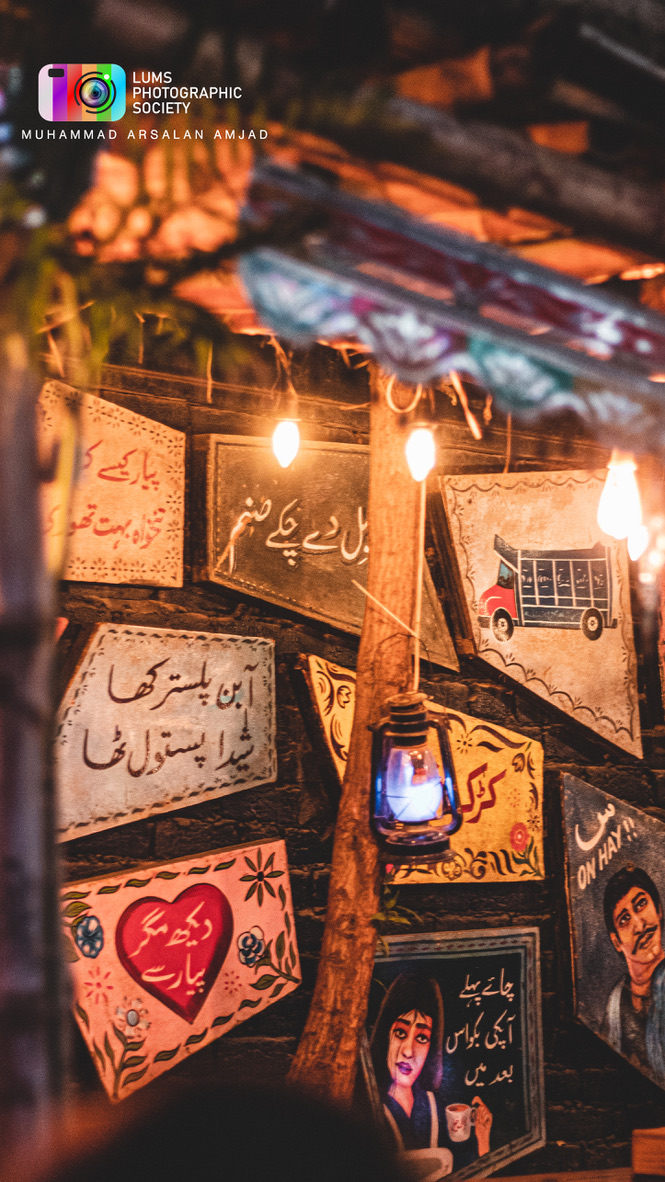 LUMS
PHOTOGRAPHIC
SOCIETY
MUHAMMAD ARSALAN AMJAD
پیار کیسے
تنخواہ بہت
دے چکے صنم
آبن پلستر کھا
شیدا پستول ٹھا
دیکھ مگر
پیار سے
ON HAY!!
چائے پہلے
آپکی بکواس
بعد میں